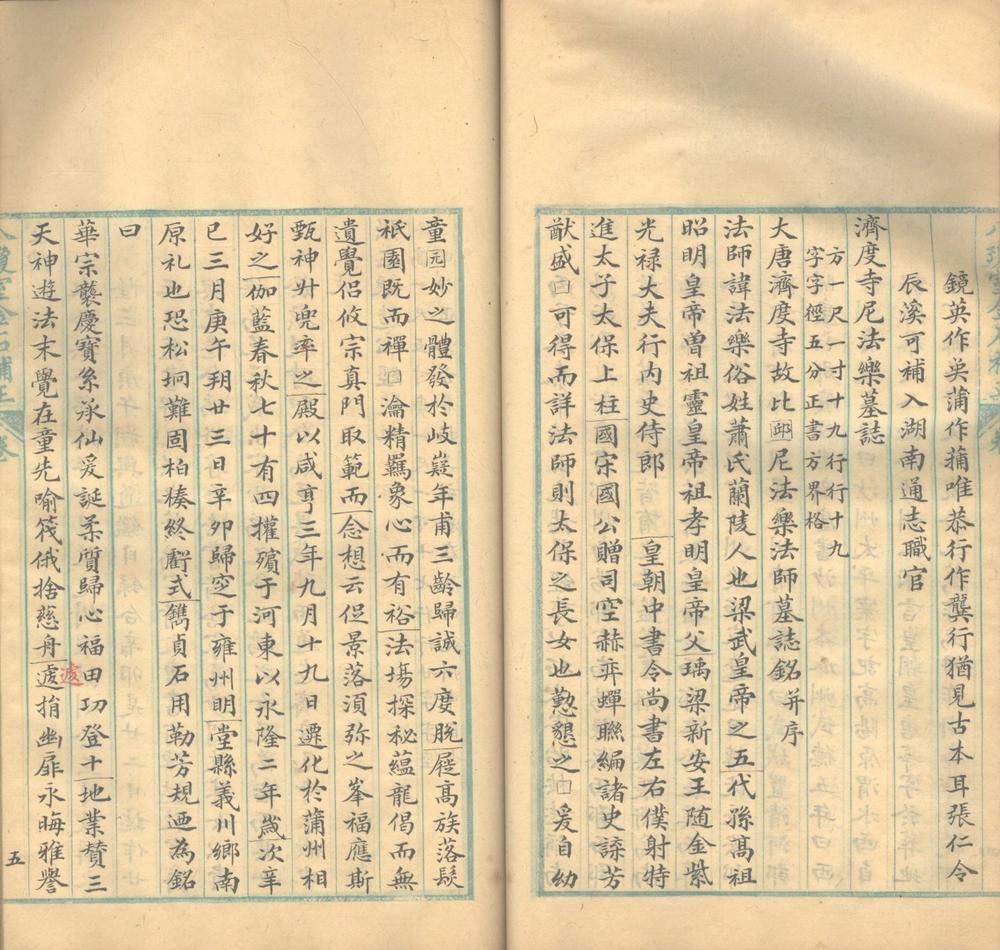 鏡英作奐蒲作蒱唯恭行作龔行猶見古本耳張仁令
辰溪可補入湖南通志職官
濟度寺尼法樂墓誌
方一尺一寸十九行行十九
字字徑五分正書方界格
大唐濟度寺故比邱尼法樂法師墓誌銘并序
法師諱法樂俗姓蕭氏蘭陵人也梁武皇帝之五代孫高祖
昭明皇帝曾祖靈皇帝祖孝明皇帝父瑀梁新安王隨金紫
光禄大夫行內史侍郎皇朝中書令尚書左右僕射特
進太子太保上柱國宋國公贈司空赫弈蟬聯編諸史諜芳
猷盛□可得而詳法師則太保之長女也懃懇之□爰自幼
童园妙之體發於岐嶷年甫三齡歸誠六度脫屣高族落髮
祇園既而禪□瀹精羈象心而有裕法塲探秘蘊龍偈而無
遺覺侶攸宗真門取範而念想云促景落須弥之峯福應斯
甄神升兜率之殿以咸亨三年九月十九日遷化於蒲州相
好之伽藍春秋七十有四權殯于河東以永隆二年歲次辛
巳三月庚午朔廿三日辛卯歸窆于雍州明堂縣義川鄉南
原礼也恐松坰難固柏榛終虧式鐫貞石用勒芳規迺為銘
曰
華宗襲慶寶系承仙爰誕柔質歸心福田功登十地業贊三
天神遊法末覺在童先喻筏俄捨慈舟遽捐幽扉永晦雅譽
遽
五